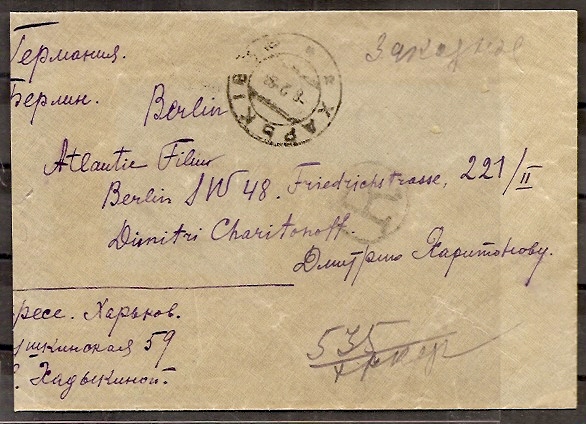 Германия.
Заказное
Берлин. Berlin
ХАРЬКІВ
Atlantic Film
Berlin SW 48. Friedrichstrasse, 221/II
Dimitri Charitonoff.
Дмитрию Харитонову.
ресс. Харьков.
ушкинская 59
Хадыкиной.
535